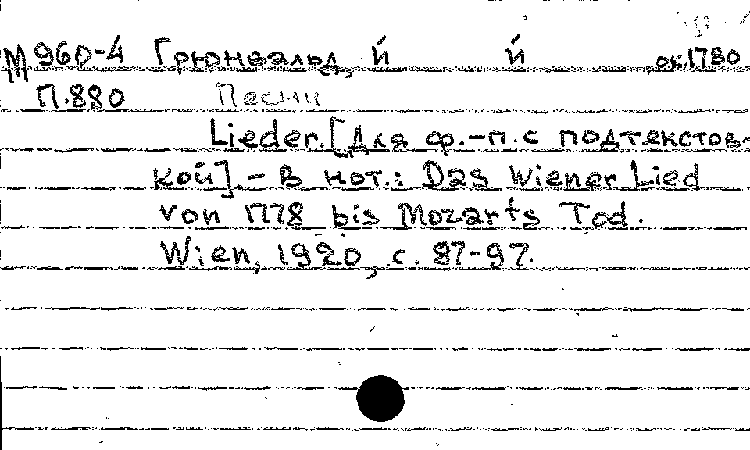 М 960-4 Грюнвальд, Й Й ок.1780
П.880 Песни
Lieder. [Для ф.-п. с подтекстов-
кой]. - В нот.: Das Wiener Lied
von 1778 bis Mozarts Tod.
Wien, 1920, с. 87-97.